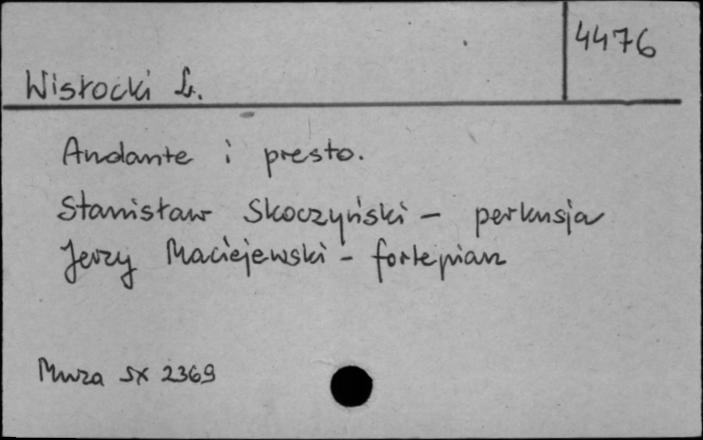 4476
Wisłocki L.
Andante i presto.
Stanisław Skoczyński - perkusja
Jerzy Maciejewski - fortepian
Muza SX 2369